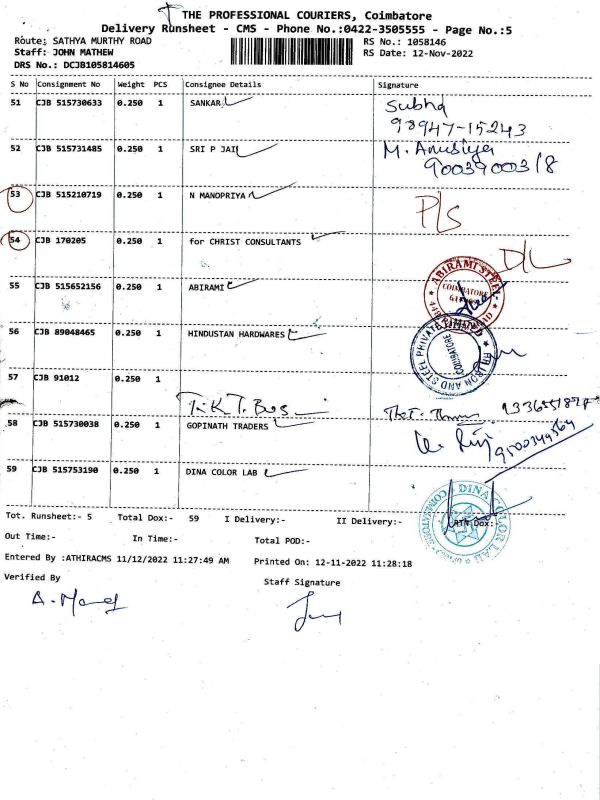 THE PROFESSIONAL COURIERS, Coimbatore
Delivery Runsheet - CMS - Phone No.:0422-3505555 - Page No.:5
Route: SATHYA MURTHY ROAD RS No.: 1058146
Staff: JOHN MATHEW RS Date: 12-Nov-2022
DRS No.: DCJB105814605
S No Consignment No Weight PCS Consignee Details Signature
51 CJB 515730633 0.250 1 SANKAR Subha
98947-15243
52 CJB 515731485 0.250 1 SRI P JAI M. Anusiya
9003900318
53 CJB 515210719 0.250 1 N MANOPRIYA P/S
54 CJB 170205 0.250 1 for CHRIST CONSULTANTS D/L
55 CJB 515652156 0.250 1 ABIRAMI ABIRAMI STEEL COIMBATORE
56 CJB 89048465 0.250 1 HINDUSTAN HARDWARES AND STEEL PRIVATE LIMITED COIMBATORE
57 CJB 91012 0.250 1
T.K.T. Bus
58 CJB 515730038 0.250 1 GOPINATH TRADERS 9500349564
59 CJB 515753190 0.250 1 DINA COLOR LAB DINA COLOR LAB
Tot. Runsheet:- 5 Total Dox:- 59 I Delivery:- II Delivery:- RTN Dox:-
Out Time:- In Time:- Total POD:-
Entered By :ATHIRACMS 11/12/2022 11:27:49 AM Printed On: 12-11-2022 11:28:18
Verified By Staff Signature